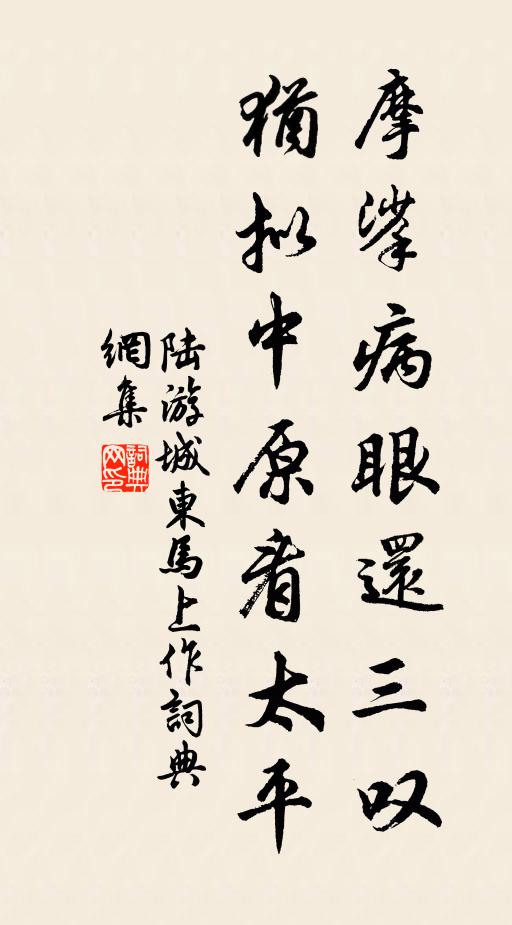 摩挲病眼還三叹
猶拟中原看太平
陆游城東馬上作詞典
網集
詞典
网印